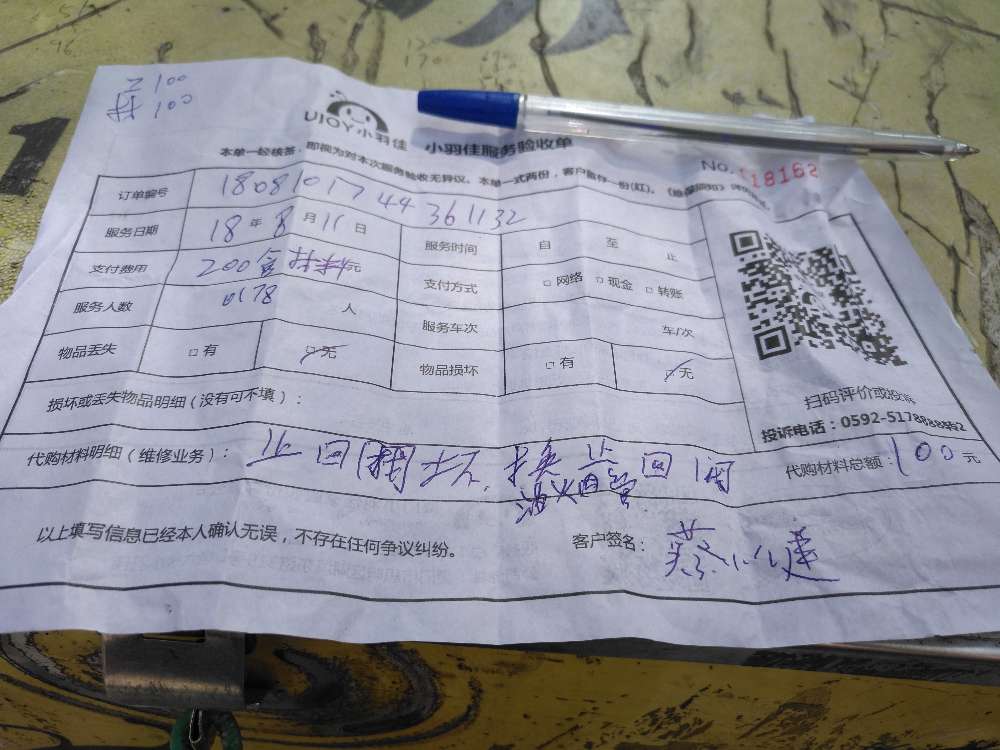 工100
材100
UJOY小羽佳 小羽佳服务验收单
本单一经核签，即视为对本次服务验收无异议。本单一式两份，客户留存一份(红)。
No. 118162
订单编号 180810174436 1132
服务日期 18 年 8 月 11 日 服务时间 自 至 止
支付费用 200含材料元 支付方式 □网络 □现金 □转账
服务人数 0178 人 服务车次 车/次
物品丢失 □有 □无 物品损坏 □有 □无
损坏或丢失物品明细（没有可不填）：
扫码评价或投诉
投诉电话：0592-5178888转2
代购材料明细（维修业务）： 止回阀坏，换止回阀 代购材料总额：100元
以上填写信息已经本人确认无误，不存在任何争议纠纷。 客户签名：